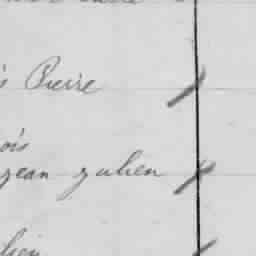 s Pierre
ois
jean julien
lien